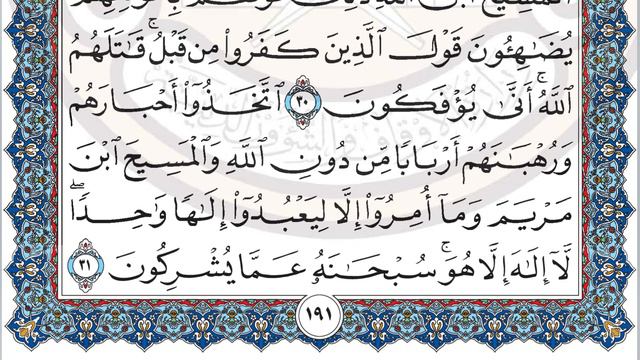 يُضَـٰهِـُٔونَ قَوۡلَ ٱلَّذِينَ كَفَرُواْ مِن قَبۡلُۚ قَـٰتَلَهُمُ
ٱللَّهُۖ أَنَّىٰ يُؤۡفَكُونَ ٣٠ ٱتَّخَذُوٓاْ أَحۡبَارَهُمۡ
وَرُهۡبَـٰنَهُمۡ أَرۡبَابٗا مِّن دُونِ ٱللَّهِ وَٱلۡمَسِيحَ ٱبۡنَ
مَرۡيَمَ وَمَآ أُمِرُوٓاْ إِلَّا لِيَعۡبُدُوٓاْ إِلَـٰهٗا وَٰحِدٗاۖ
لَّآ إِلَـٰهَ إِلَّا هُوَۚ سُبۡحَـٰنَهُۥ عَمَّا يُشۡرِكُونَ ٣١
١٩١